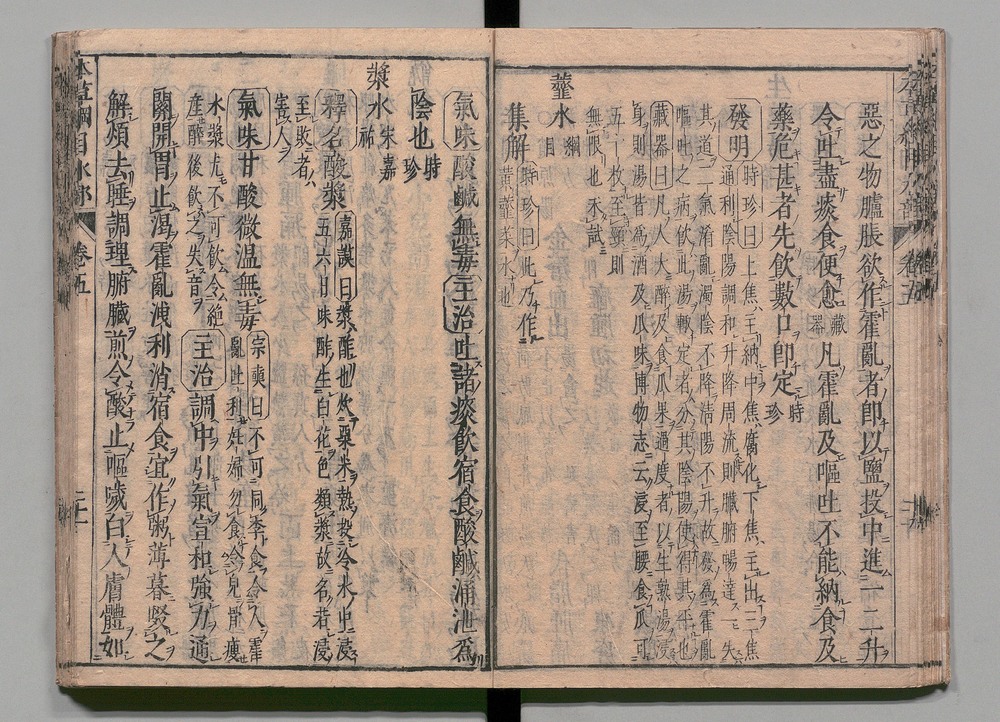 惡之物臚脹欲作霍亂者即以鹽投中進一二升
令吐盡痰食便愈 藏器 凡霍亂及嘔吐不能納食及
藥危甚者先飲數口即定 時珍
發明 時珍曰上焦主納中焦腐化下焦主出三焦
通利陰陽調和升降周流則臟腑暢達一失
其道二氣淆亂濁陰不降清陽不升故發爲霍亂
嘔吐之病飲此湯輙定者分其陰陽使得其平也
藏器曰凡人大醉及食瓜果過度者以生熟湯浸
身則湯皆爲酒及瓜味博物志云浸至腰食瓜可
五十枚至頸則
無限也未試
虀水 綱目
集解 時珍曰此乃作
黄虀菜水也
氣味酸鹹無毒主治吐諸痰飲宿食酸鹹涌泄爲
陰也 時珍
漿水 宋嘉祐
釋名酸漿 嘉謨曰漿酢也炊粟米熱投冷水中浸
五六日味酢生白花色類漿故名若浸
至敗者
害人
氣味甘酸微温無毒 宗奭曰不可同李食令人霍
亂吐利妊婦勿食令兒骨瘦
水漿尤不可飲令絕
産醉後飲之失音
主治調中引氣宣和強力通
關開胃止渴霍亂洩利消宿食宜作粥薄暮啜之
解煩去睡調理腑臟煎令酸止嘔噦白人膚體如
本草綱目水部 卷五